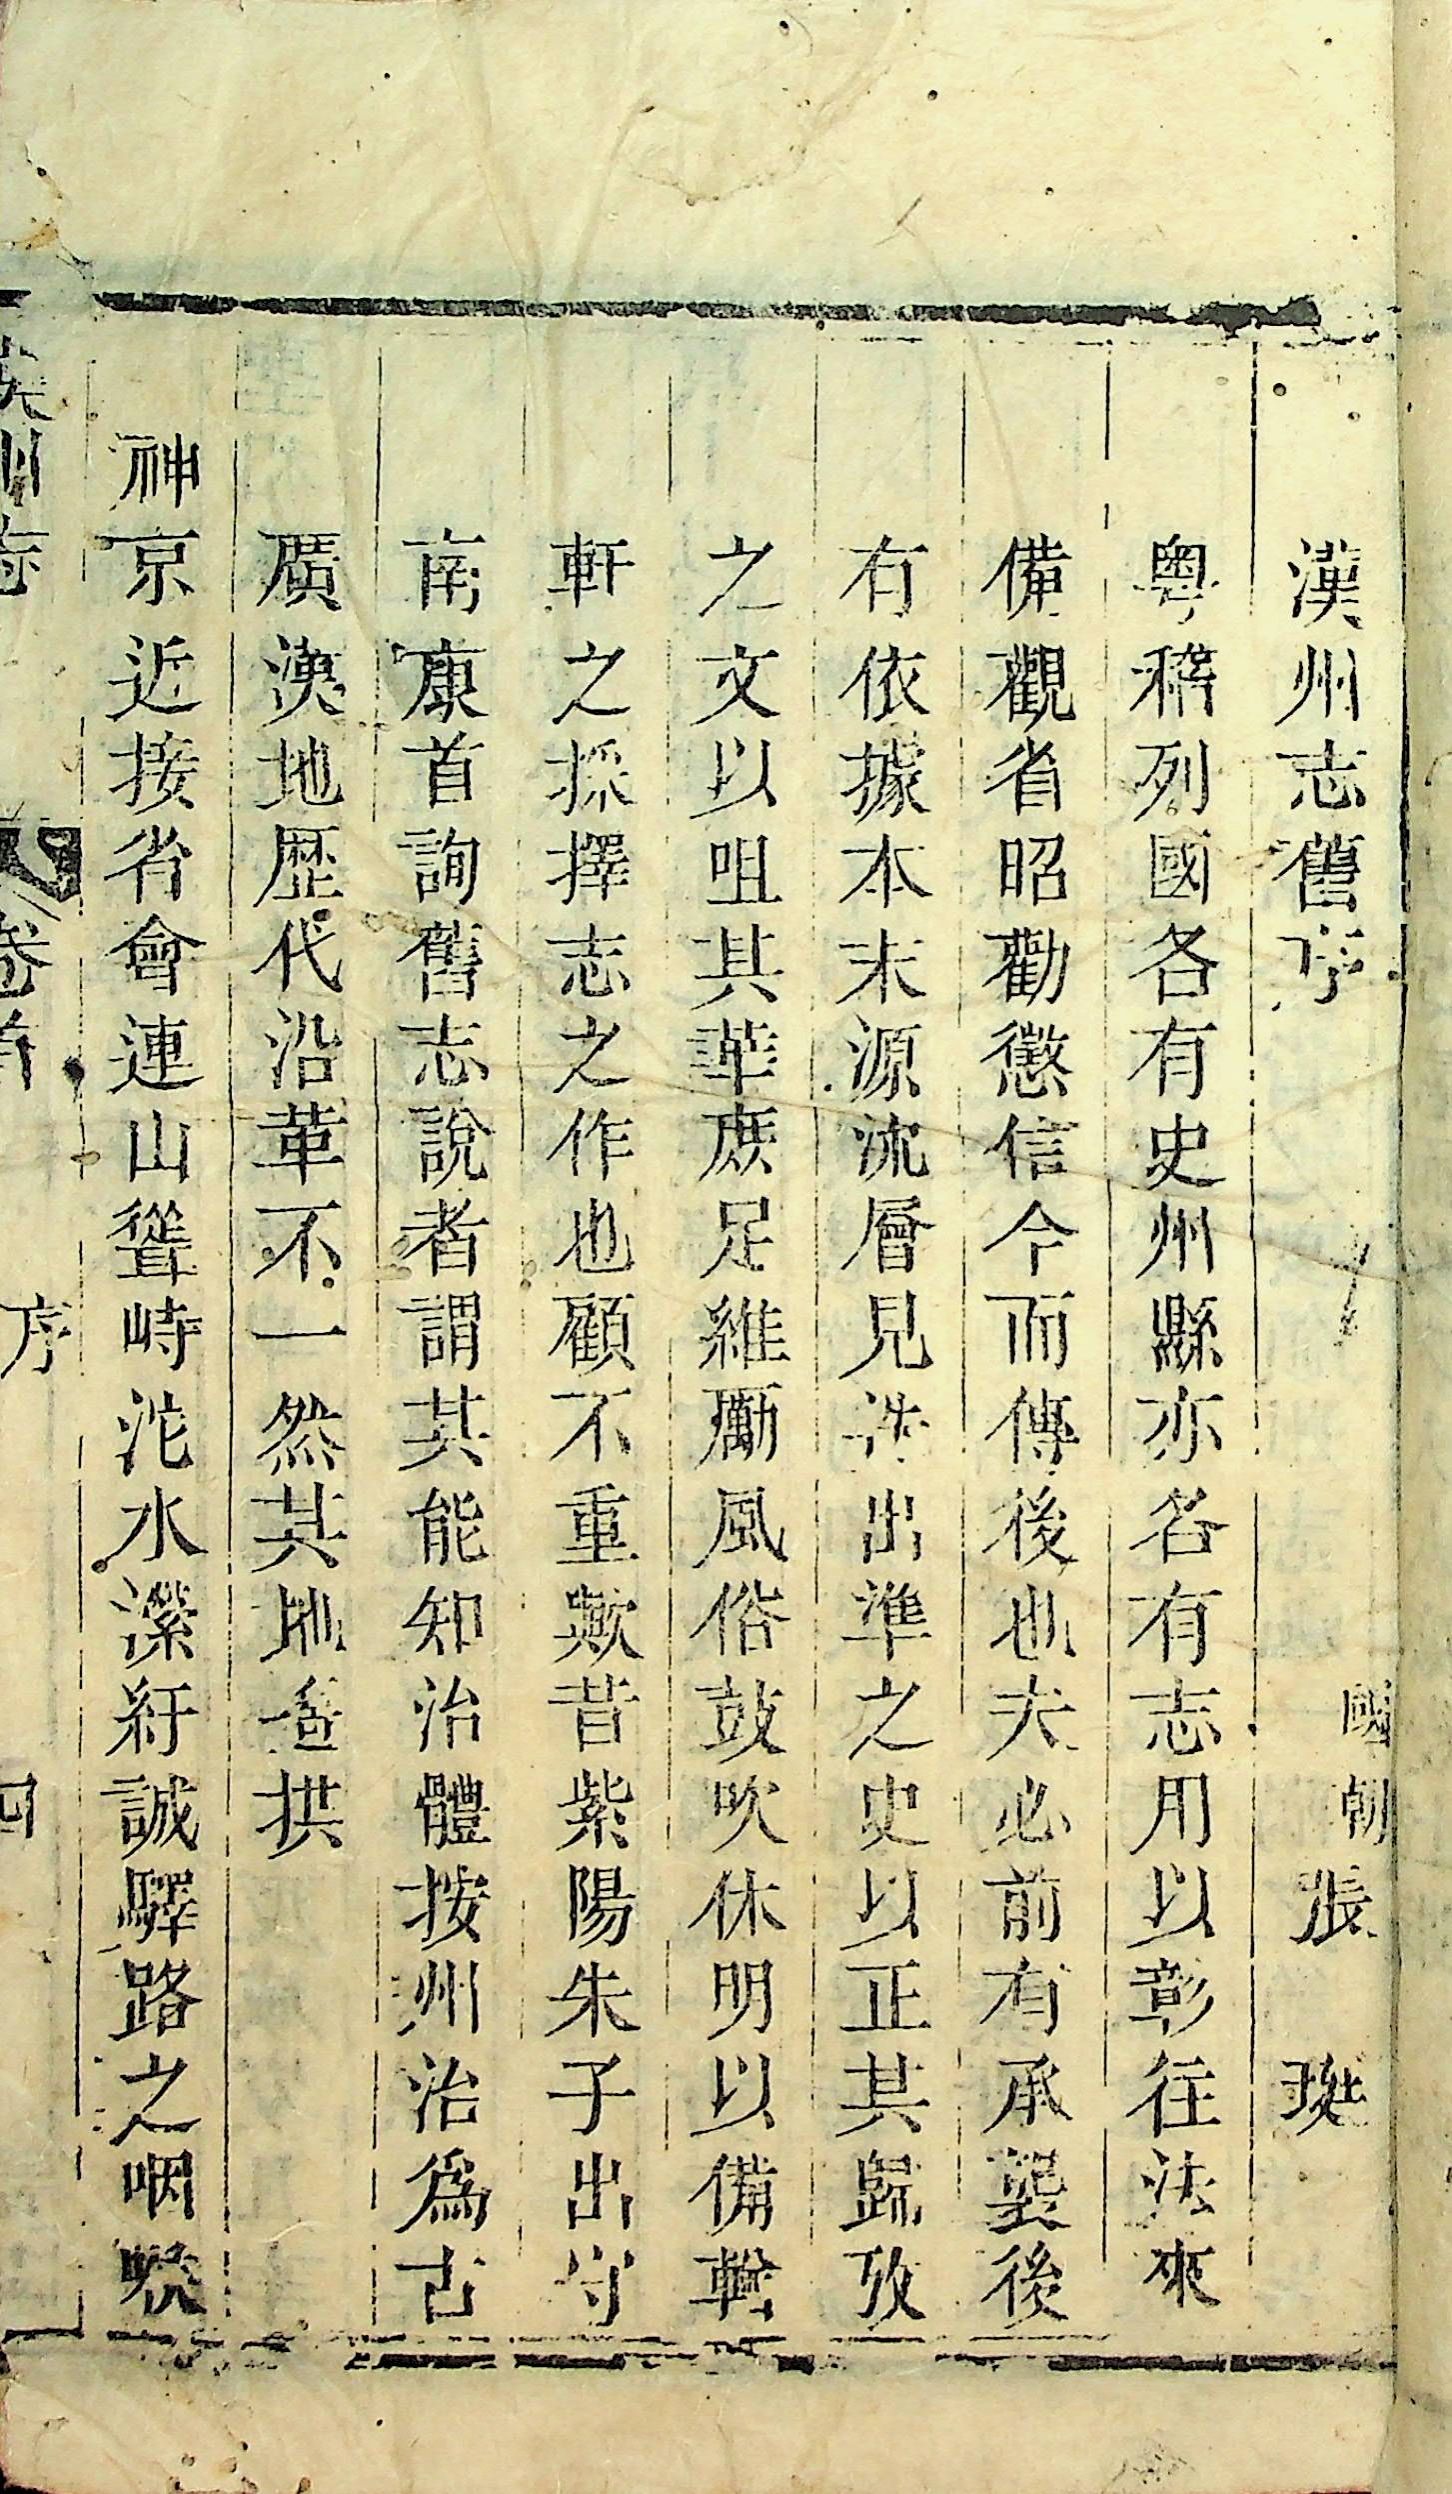 漢州志舊序
國朝張珽
粵稽列國各有史州縣亦各有志用以彰往法來
備觀省昭勸懲信今而傳後也夫必前有承襲後
有依據本末源流層見迭出準之史以正其歸攷
之文以咀其華庶足維勵風俗鼓吹休明以備輶
軒之採擇志之作也顧不重歟昔紫陽朱子出守
南康首詢舊志說者謂其能知治體按州治爲古
廣漢地歷代沿革不一然其地遙拱
神京近接省會連山聳峙沱水瀠紆誠驛路之咽喉
漢州志
卷首
序
四